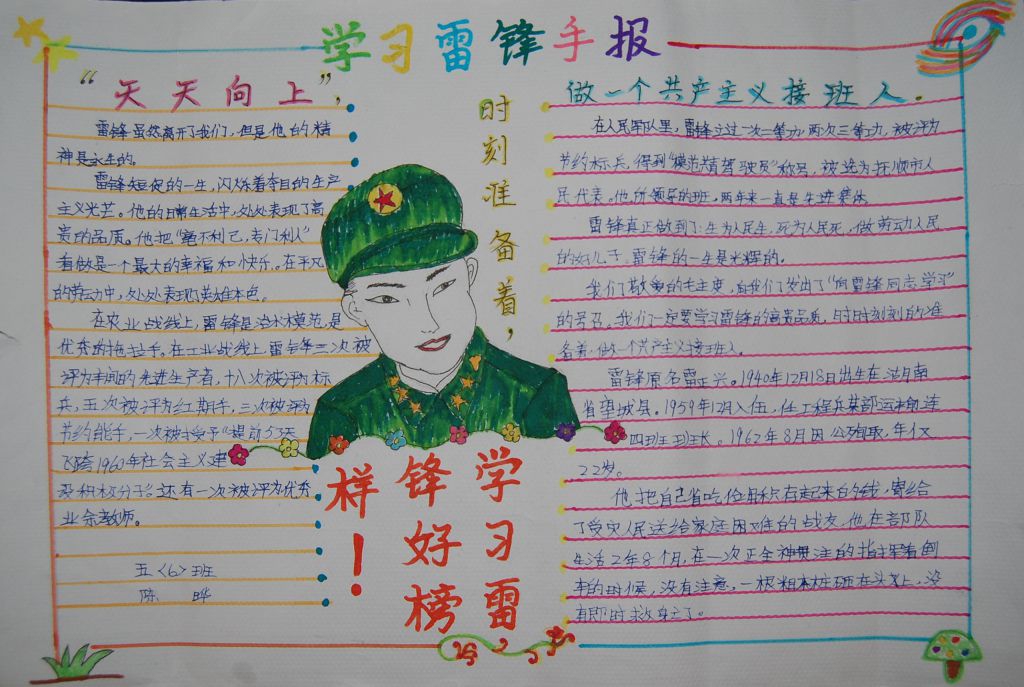 学习雷锋手报
“天天向上”,
雷锋虽然离开了我们,但是他的精
神是永生的。
雷锋短促的一生,闪烁着夺目的生产
主义光芒。他的日常生活中,处处表现了高
贵的品质。他把“毫不利己,专门利人”
看做是一个最大的幸福和快乐。在平凡
的劳动中,处处表现英雄本色。
在农业战线上,雷锋是治水模范,是
优秀的拖拉手。在工业战线上,雷锋三次被
评为车间的先进生产者,十八次被评为标
兵,五次被评为红旗手,三次被评为
节约能手,一次被授予“提前53天
飞跨1960年社会主义建
设积极分子”。还有一次被评为优秀
业余教师。
五〈6〉班
陈 晔
时刻准备着,
学习雷
锋好榜
样!
做一个共产主义接班人。
在人民军队里,雷锋立过一次二等功,两次三等功,被评为
节约标兵,得到“模范精驾驶员”称号,被选为抚顺市人
民代表。他所领导的班,两年来一直是先进集体。
雷锋真正做到了:生为人民生,死为人民死,做劳动人民
的好儿子。雷锋的一生是光辉的。
我们敬爱的毛主席,向我们发出了“向雷锋同志学习”
的号召。我们一定要学习雷锋的高贵品质,时时刻刻的准
备着,做一个共产主义接班人。
雷锋原名雷正兴。1940年12月18日出生在湖南
省望城县。1959年12月入伍,任工程兵某部运输连
四班班长。1962年8月因公殉职,年仅
22岁。
他把自己省吃俭用积存起来的钱,寄给
了受灾人民送给家庭困难的战友,他在部队
生活2年8个月,在一次正全神贯注的指挥着倒
车的时候,没有注意,一根粗木桩砸在头上,没
有即时救身亡了。